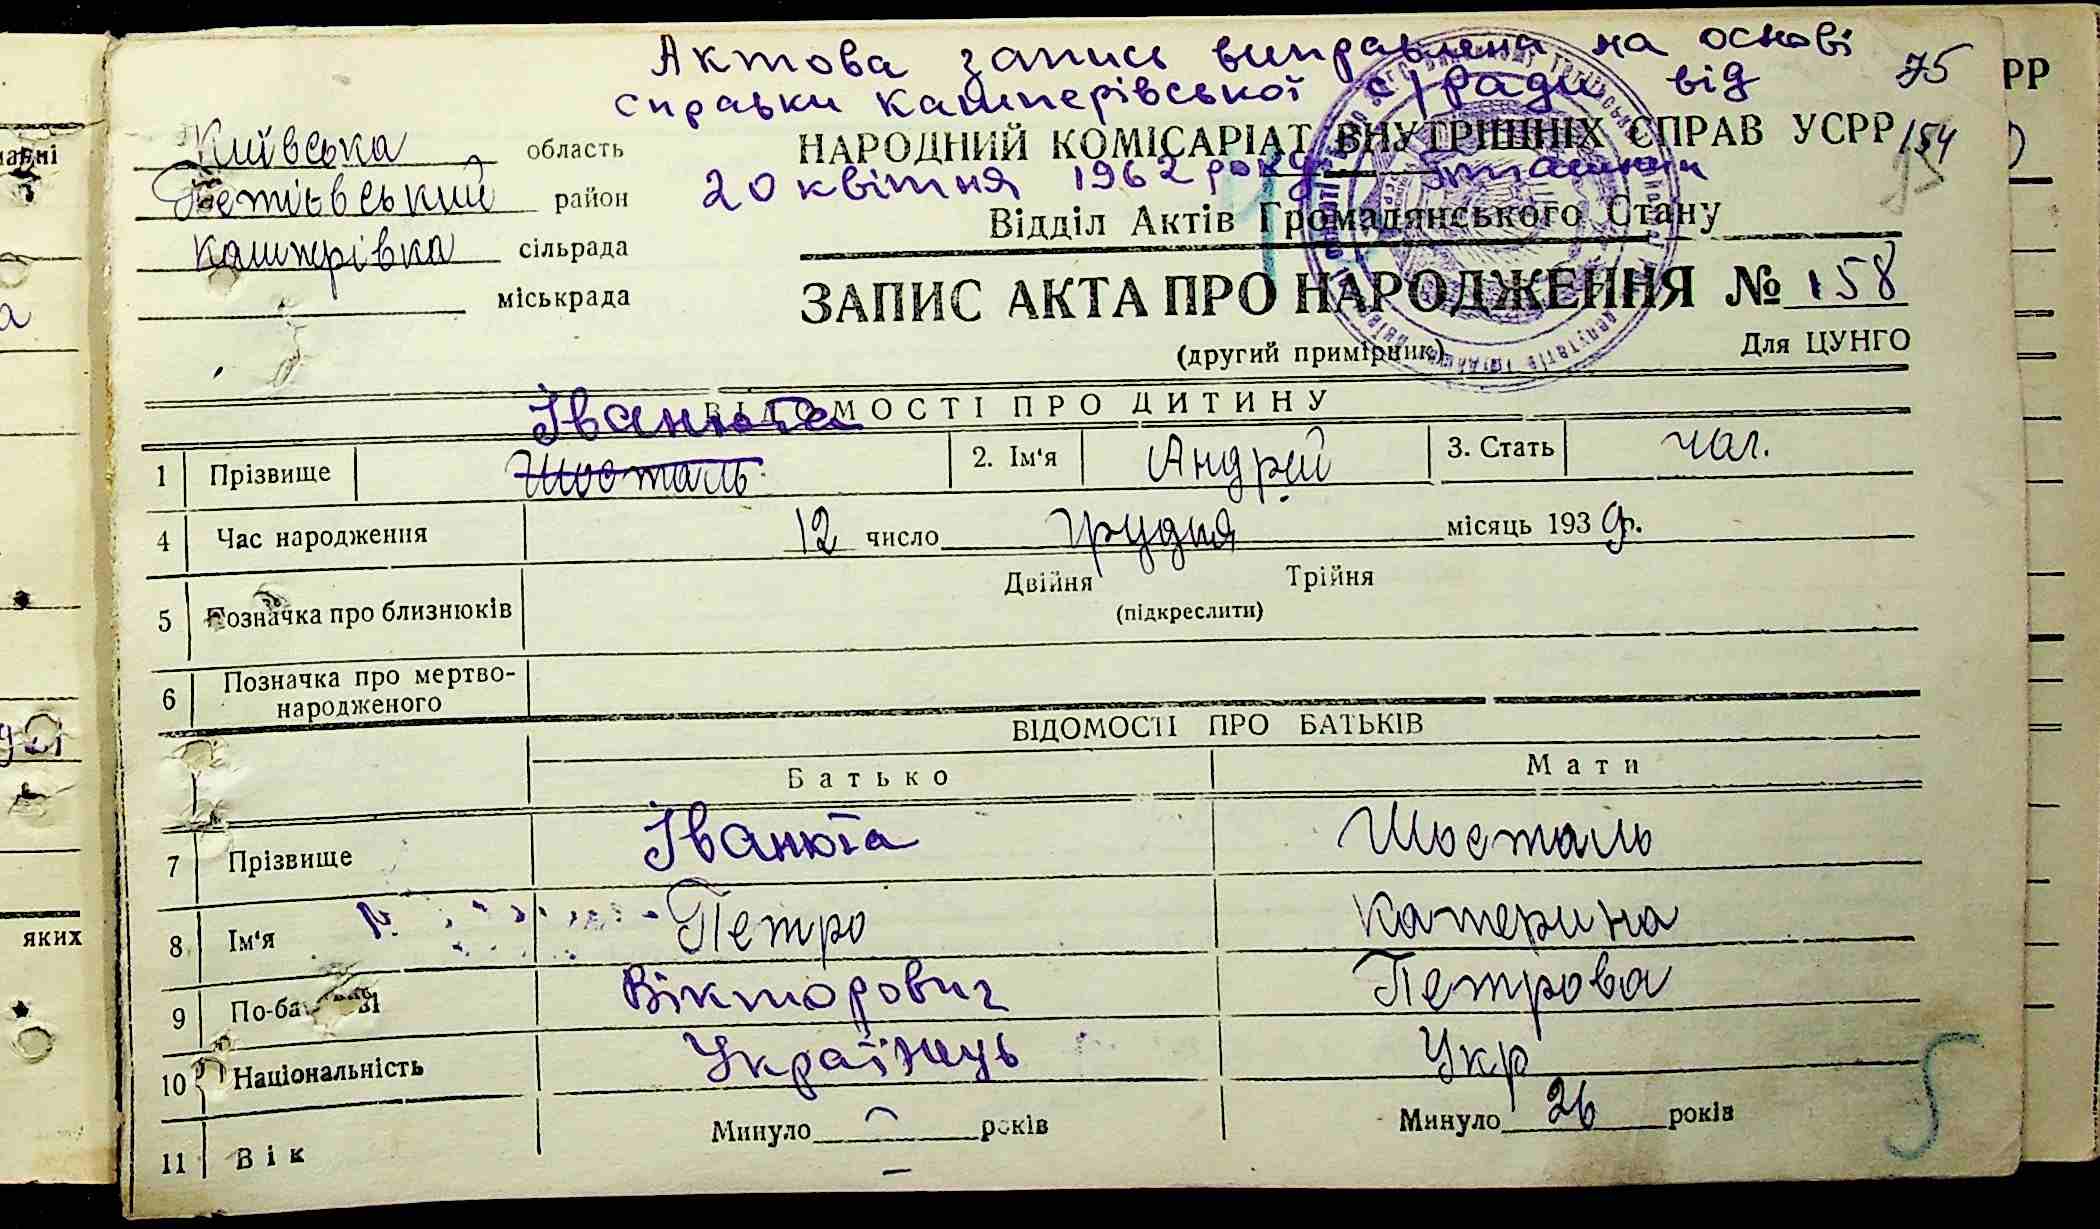 Актова запись виправлена на основі
справки Кашперівської с/Ради від 75
НАРОДНИЙ КОМІСАРІАТ ВНУТРІШНІХ СПРАВ УСРР 154
20 квітня 1962 року
Київська область
Тетіївський район
Кашперівка сільрада
міськрада
Відділ Актів Громадянського Стану
ЗАПИС АКТА ПРО НАРОДЖЕННЯ № 158
(другий примірник) Для ЦУНГО
ВІДОМОСТІ ПРО ДИТИНУ
Іванюта
1 Прізвище Шосталь 2. Ім'я Андрій 3. Стать чол.
4 Час народження 12 число грудня місяць 193 р.
Двійня Трійня
5 Позначка про близнюків (підкреслити)
6 Позначка про мертво-
народженого
ВІДОМОСТІ ПРО БАТЬКІВ
Батько Мати
7 Прізвище Іванюта Шосталь
8 Ім'я Петро Катерина
9 По-батькові Вікторович Петрова
10 Національність Українець Укр
11 Вік Минуло — років Минуло 26 років
яких
РР